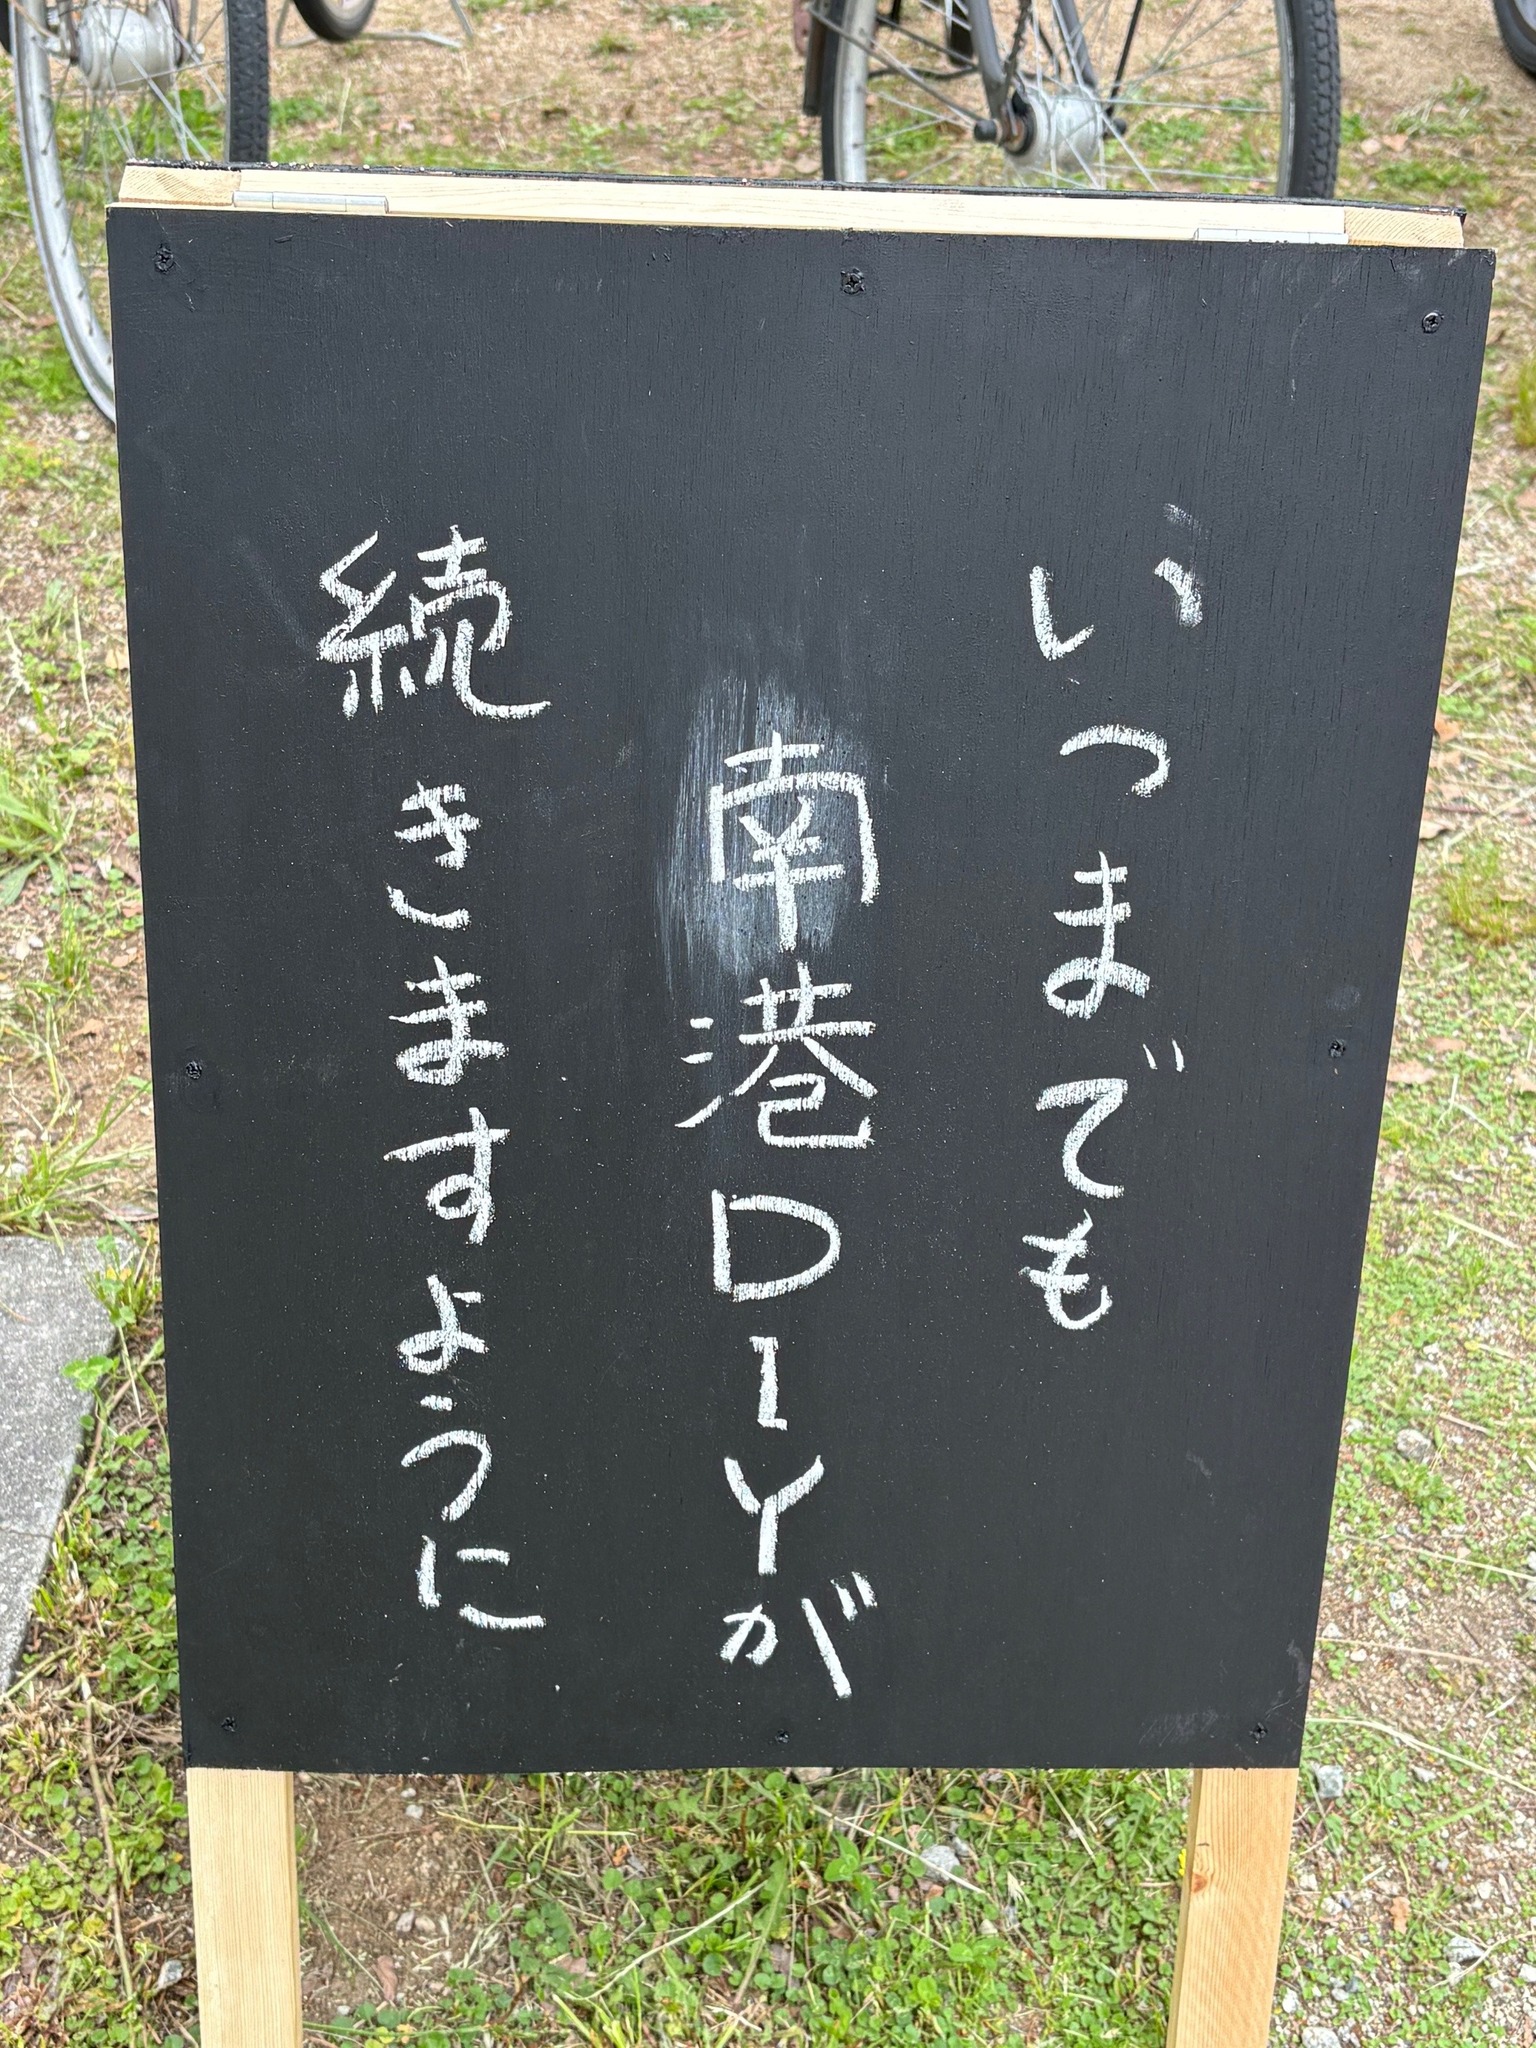 いつまでも
南港DIYが
続きますように